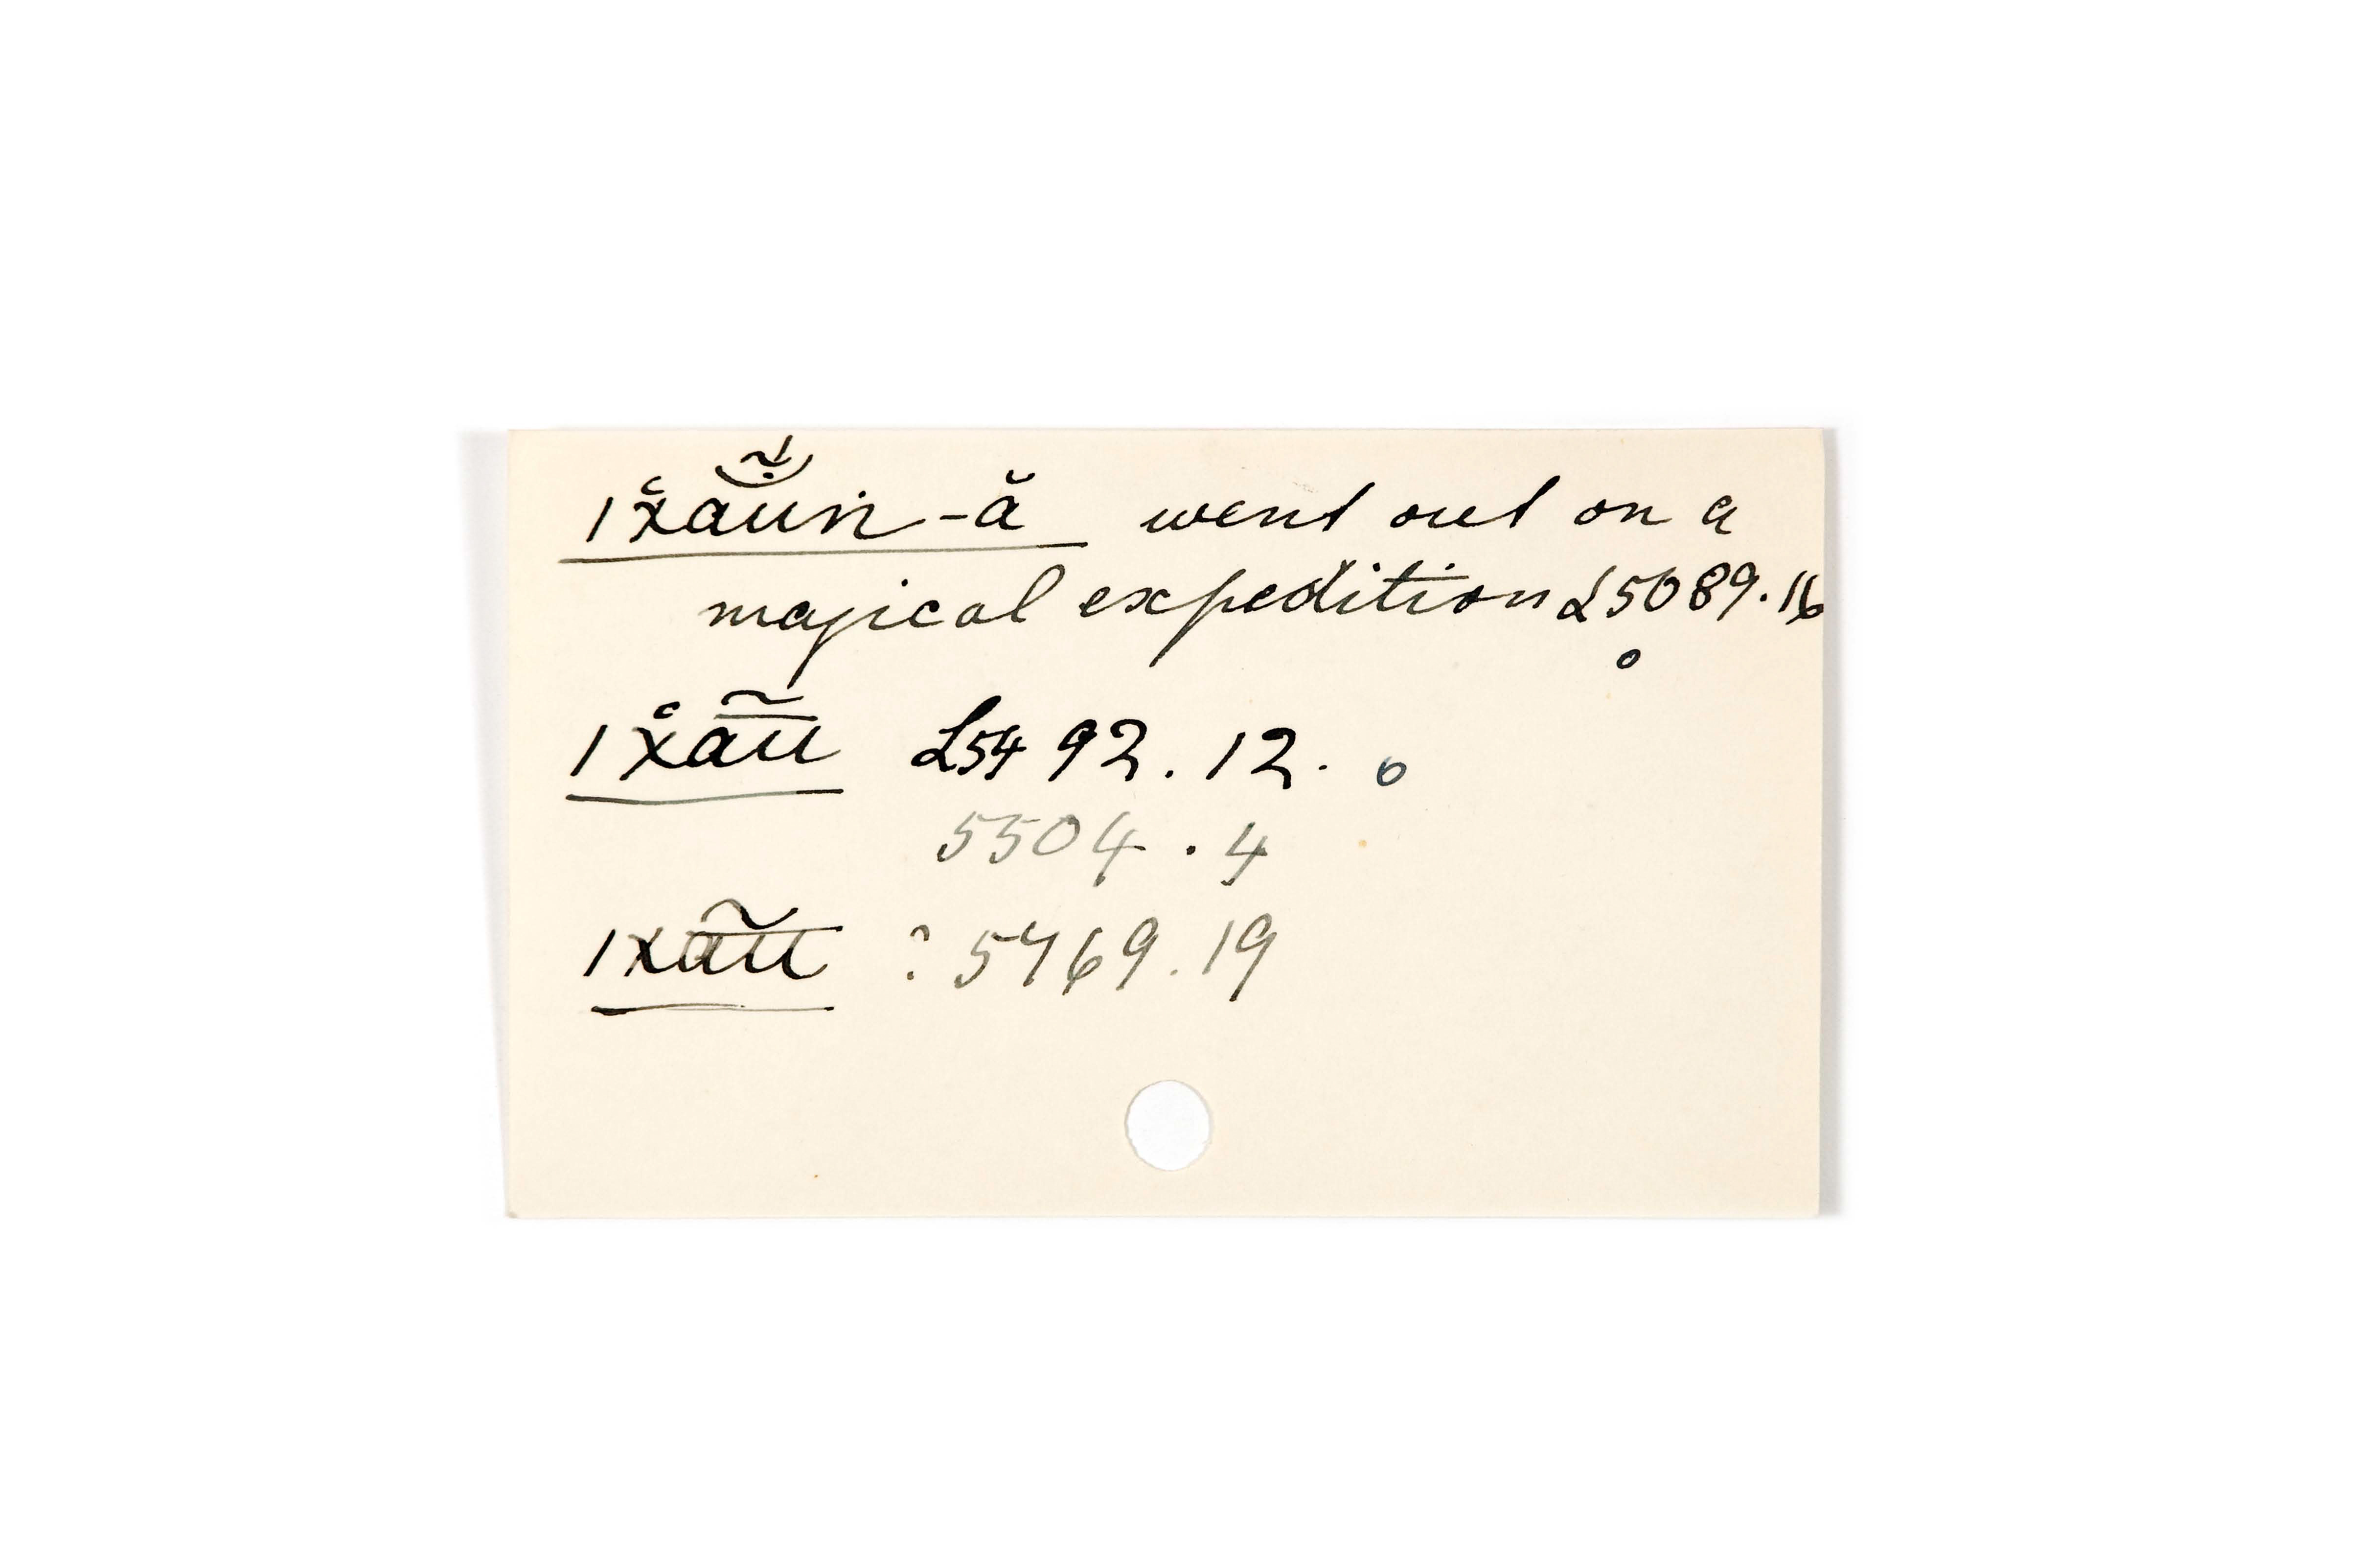 |x̌aũṅ-ă went out on a
magical expedition L5089.16
o
|x̌aũ L5492.12. o
5504.4
|xaũ ? 5469.19